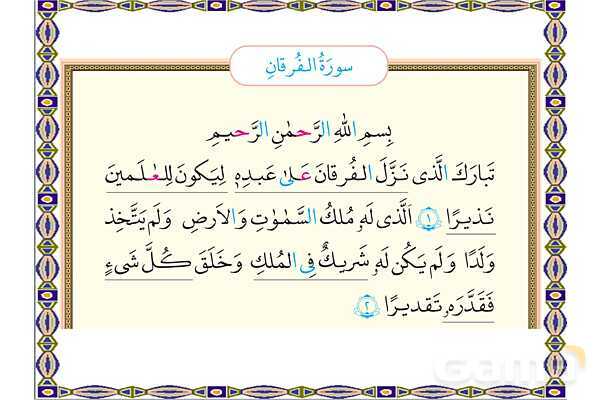 سورَةُ الفُرقانِ
بِسمِ اللهِ الرَّحمٰنِ الرَّحیمِ
تَبارَكَ الَّذی نَزَّلَ الفُرقانَ عَلیٰ عَبدِهٖ لِیَکونَ لِلعٰلَمینَ
نَذیرًا ﴿١﴾ اَلَّذی لَهٗ مُلكُ السَّمٰوٰتِ وَالاَرضِ وَلَم یَتَّخِذ
وَلَدًا وَلَم یَکُن لَهٗ شَریكٌ فِی المُلكِ وَخَلَقَ کُلَّ شَیءٍ
فَقَدَّرَهٗ تَقدیرًا ﴿٢﴾
Gama